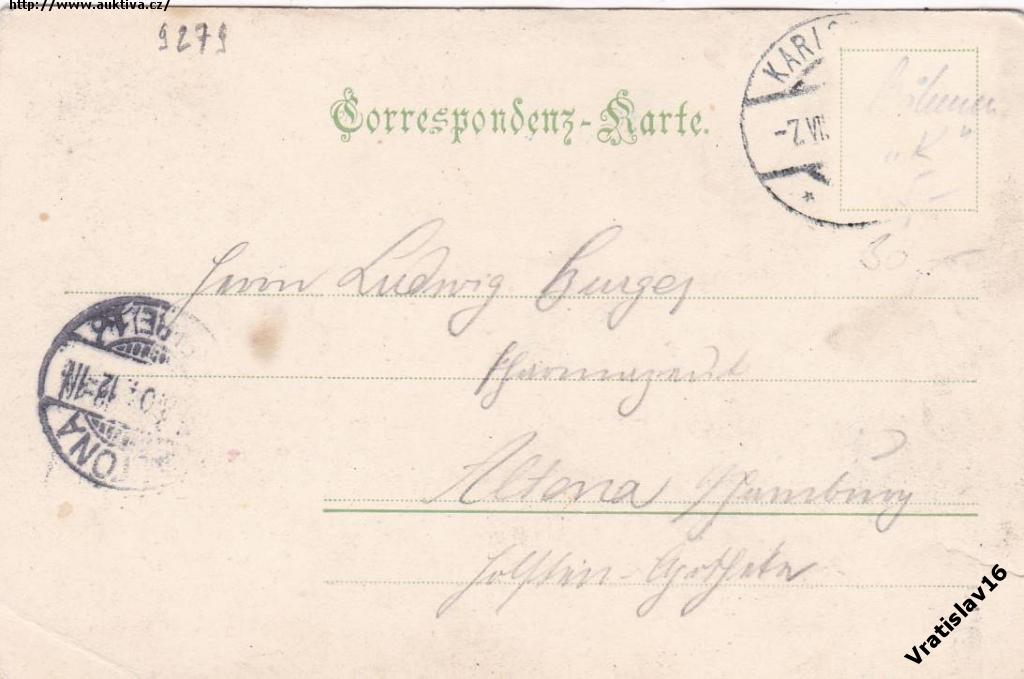 http://www.auktiva.cz/
9279
Correspondenz-Karte.
KARL
Böhmen
„K"
30,-
Herrn Ludwig Burges
Pharmazeut
Altona Hamburg
Holstein-Apotheke
TONA
12-1N
Vratislav16